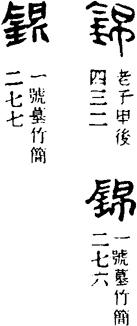 錦
老子甲後
四三二
錦
一號墓竹簡
二七六
錦
一號墓竹簡
二七七